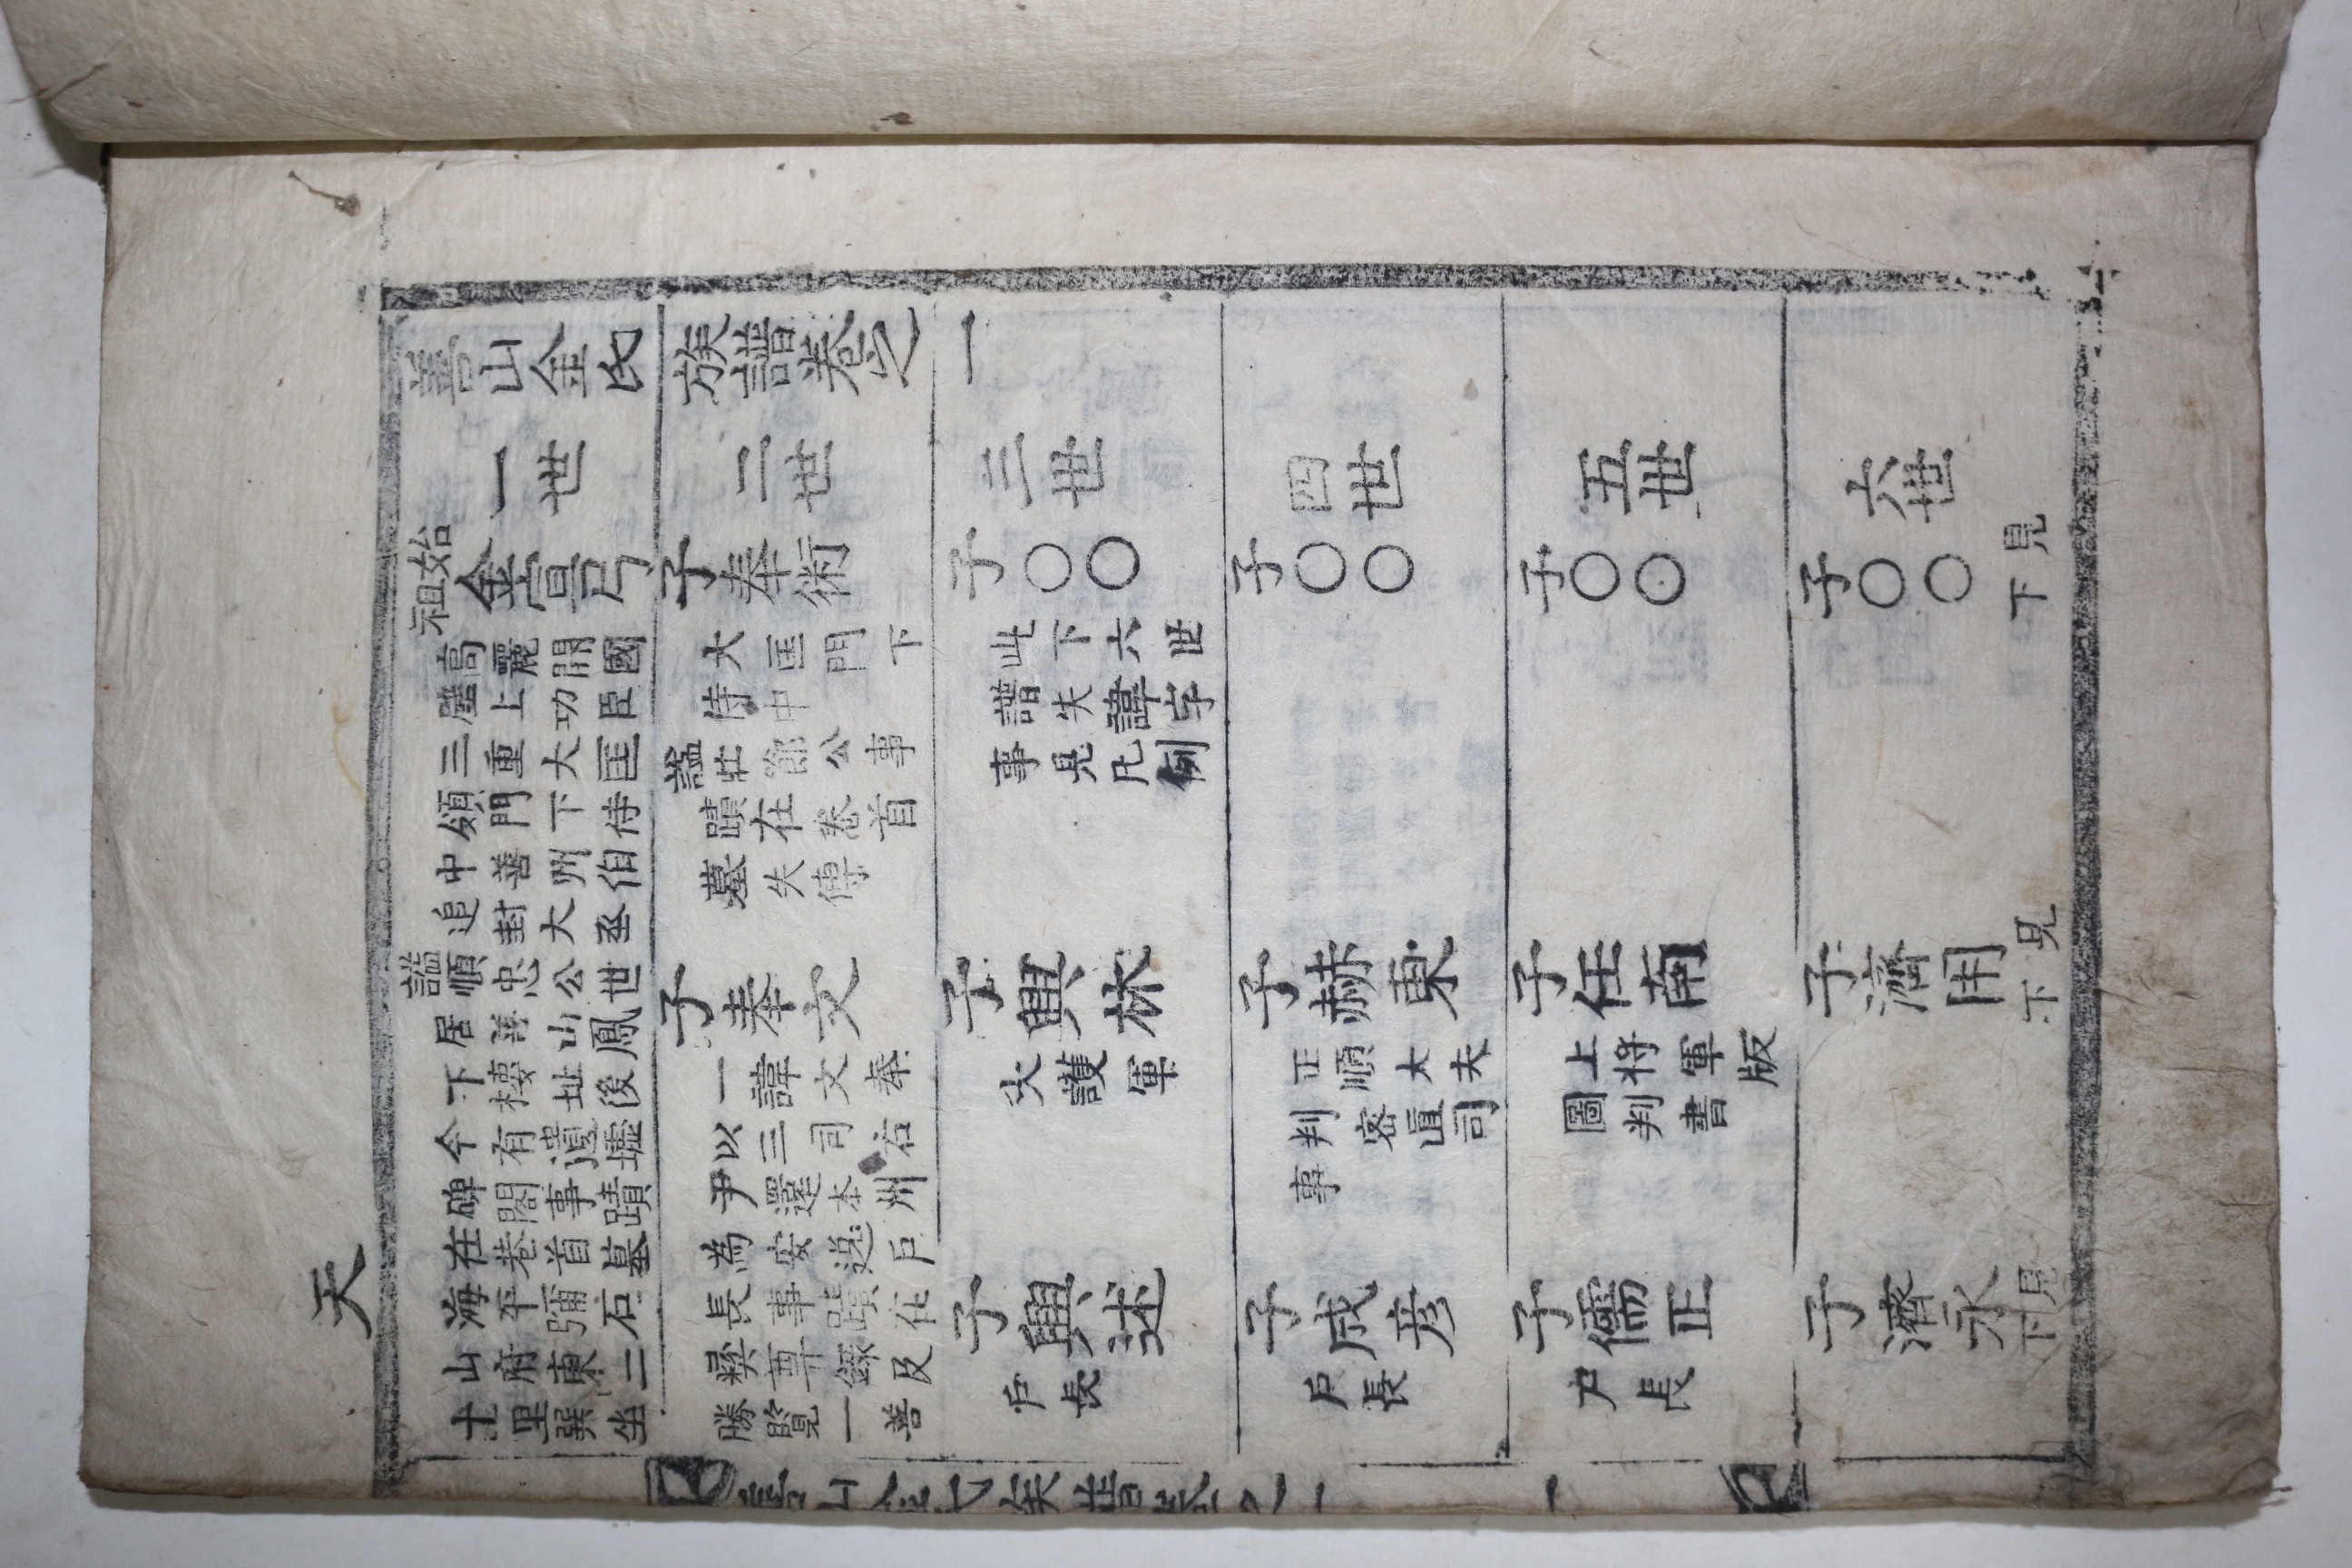 天
善山金氏族譜卷之一
一世
二世
三世
四世
五世
六世
始祖金宣弓
高麗開國
壁上功臣
三重大匡
領門下侍
中善州伯
追封大丞
謚順忠公世
居善山鳳
下樓址後
今有遺墟
碑閣事蹟
在卷首墓
海平彌石
山府東二
十里巽坐
子奉術
大匡門下
侍中
謚壯節公事
蹟在卷首
墓失傳
子奉文
一諱文奉
以三司右
尹還本州
為安逸戶
長事蹟在
彜尊錄及
勝覽一善
子〇〇
此下六世
譜失諱字
事見凡例
子興林
大護軍
子興述
戶長
子〇〇
子赫東
正順大夫
判密直司
事
子成彦
戶長
子〇〇
子任南
上將軍版
圖判書
子儒正
戶長
子〇〇見下
子濟用見下
子濟永見下
善山金氏族譜卷之一
一